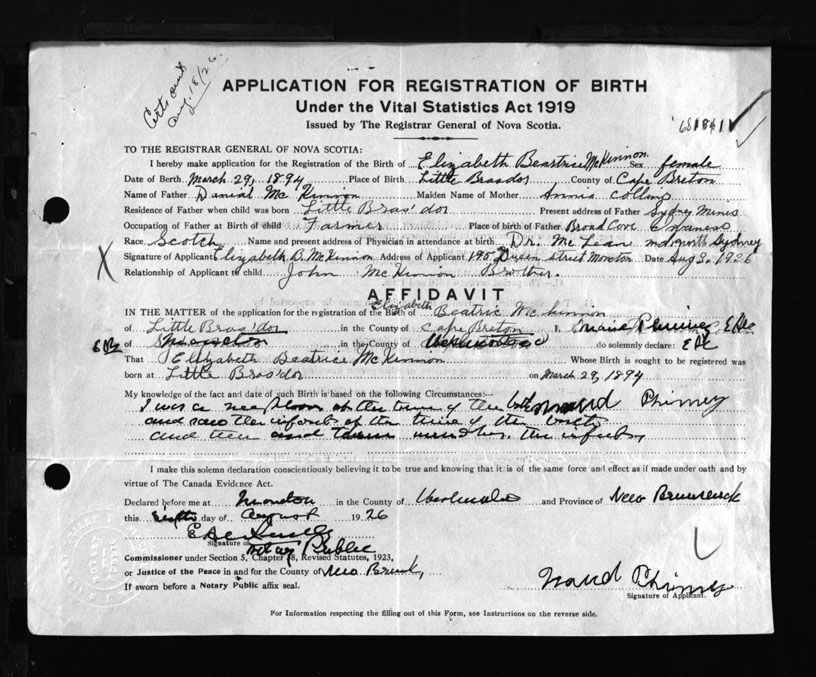 Aug. 18/26.
APPLICATION FOR REGISTRATION OF BIRTH
Under the Vital Statistics Act 1919
Issued by The Registrar General of Nova Scotia.
TO THE REGISTRAR GENERAL OF NOVA SCOTIA:
I hereby make application for the Registration of the Birth of Elizabeth Beartrice McKinnon Sex female
Date of Birth March 29, 1894 Place of Birth Little Brasdor County of Cape Breton
Name of Father Daniel McKinnon Maiden Name of Mother Annie Collins
Residence of Father when child was born Little Bras'dor Present address of Father Sydney Mines
Occupation of Father at Birth of child Farmer Place of birth of Father Broad Cove
Race Scotch Name and present address of Physician in attendance at birth Dr. McLean north Sydney
Signature of Applicant Elizabeth B. McKinnon Address of Applicant 195 Queen street Moncton Date Aug 3. 1926
Relationship of Applicant to child John McKinnion Brother.
AFFIDAVIT
IN THE MATTER of the application for the registration of the Birth of Elizabeth Beatric McKinnon
of Little Bras'dor in the County of Cape Breton I,
of in the County of do solemnly declare:
That Elizabeth Beatrice McKinnion Whose Birth is sought to be registered was
born at Little Bras'dor on March 29, 1894
My knowledge of the fact and date of such Birth is based on the following Circumstances:—
I was a at the time of the birth
and saw the infant at the time of the birth
and the infant
I make this solemn declaration conscientiously believing it to be true and knowing that it is of the same force and effect as if made under oath and by
virtue of The Canada Evidence Act.
Declared before me at Moncton in the County of and Province of New Brunswick
this day of August 1926
Signature of
Notary Public
Commissioner under Section 5, Chapter 38, Revised Statutes, 1923,
or Justice of the Peace in and for the County of New Bruns.
If sworn before a Notary Public affix seal.
Phinney
Signature of Applicant.
For Information respecting the filling out of this Form, see Instructions on the reverse side.